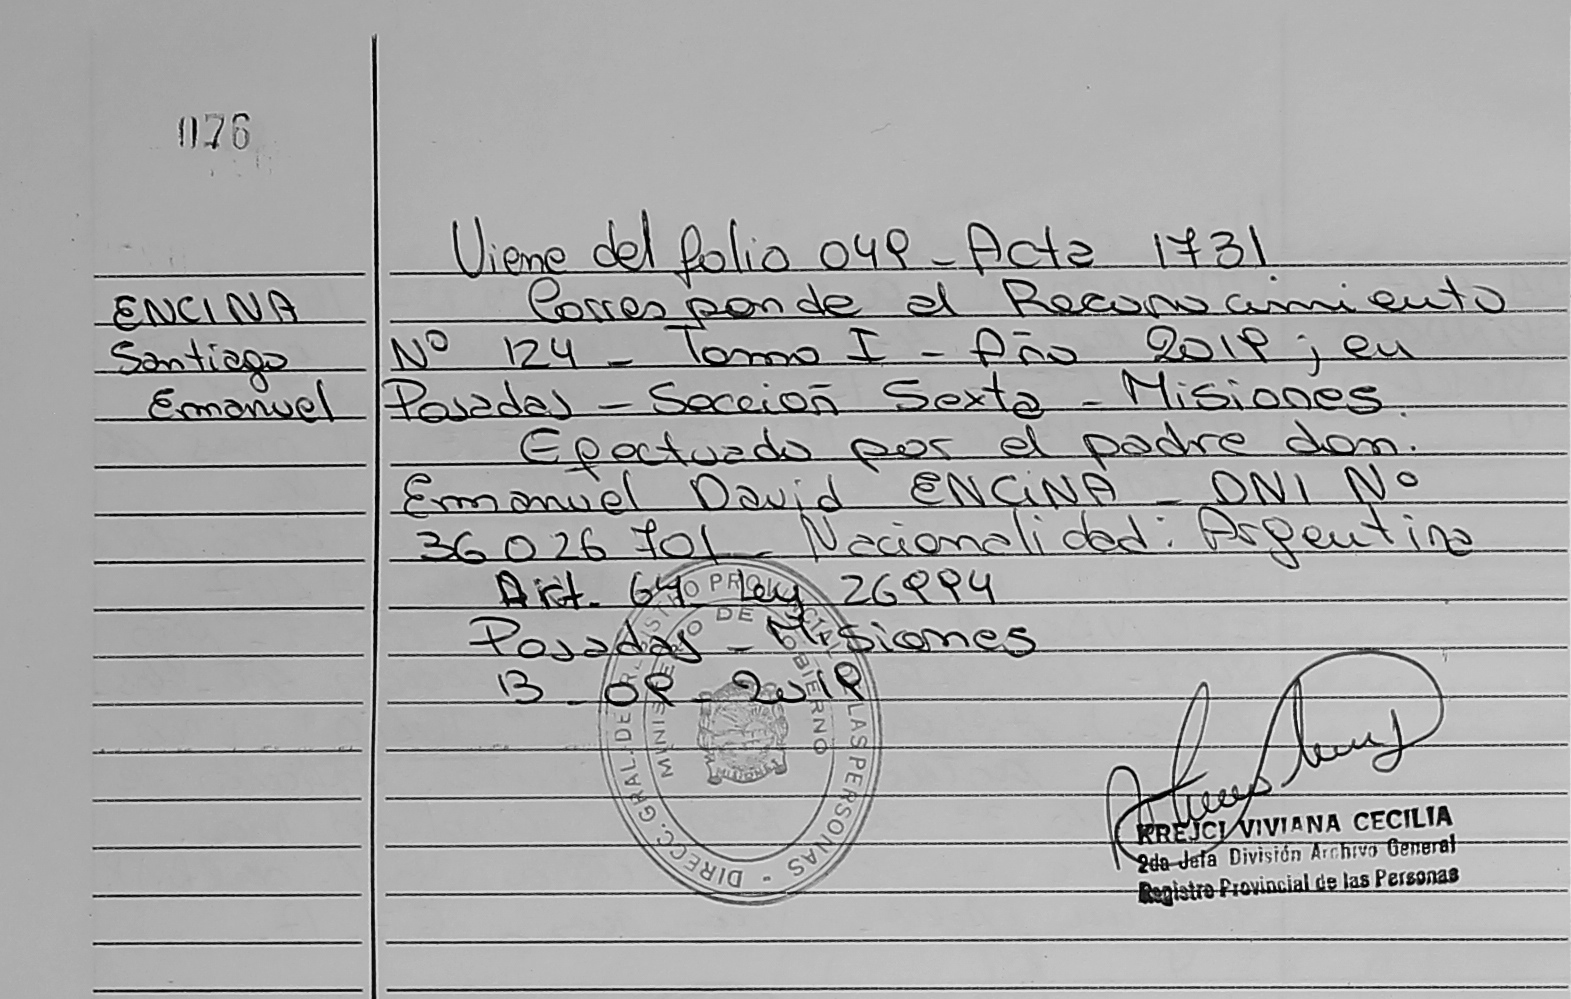 076
Viene del folio 049 - Acta 1731
ENCINA
Corresponde al Reconocimiento
Santiago
Nº 124 - Tomo I - Año 2019; en
Emanuel
Posadas - Sección Sexta - Misiones.
Efectuado por el padre don:
Emanuel David ENCINA - DNI Nº
36 026 701 - Nacionalidad: Argentina
Art. 64. Ley 26994
Posadas - Misiones
13 - 09 - 2019
DIRECC. GRAL. DE REGISTRO PROVINCIAL DE LAS PERSONAS -
MINISTERIO DE GOBIERNO
MISIONES
KREJCI VIVIANA CECILIA
2da Jefa División Archivo General
Registro Provincial de las Personas